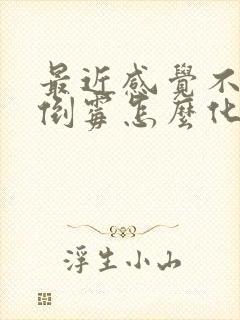 最近感覺不
倒霉怎麼化
浮生小山